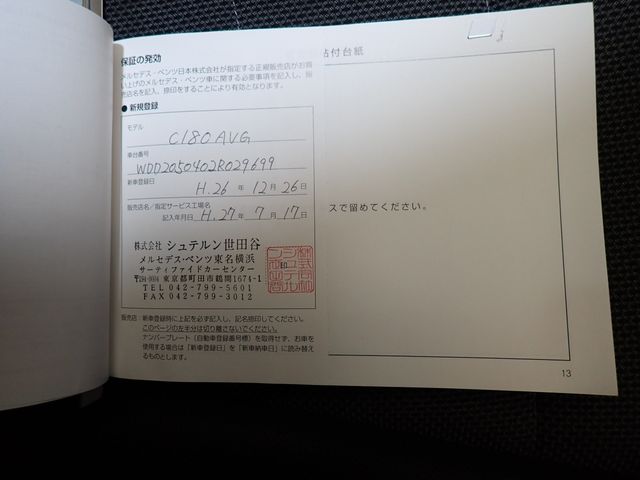 保証の発効
メルセデス・ベンツ日本株式会社が指定する正規販売店がお買
い上げのメルセデス・ベンツ車に関する必要事項を記入し、販
売店名を記入、捺印をすることにより有効となります。
● 新規登録
モデル
C180 AVG
車台番号
WDD2050402R029699
新車登録日
H.26 年 12 月 26 日
販売店名/指定サービス工場名
記入年月日 H.27 年 7 月 17 日
株式会社 シュテルン世田谷
メルセデス・ベンツ東名横浜
サーティファイドカーセンター
〒194-0004 東京都町田市鶴間1674-1
TEL 042-799-5601
FAX 042-799-3012
印
販売店:新車登録時に上記を必ず記入し、記名捺印してください。
このページの左半分は切り離さないでください。
ナンバープレート(自動車登録番号標)を取得せず、お車を
使用する場合は「新車登録日」を「新車納車日」に読み替え
るものとします。
貼付台紙
スで留めてください。
13